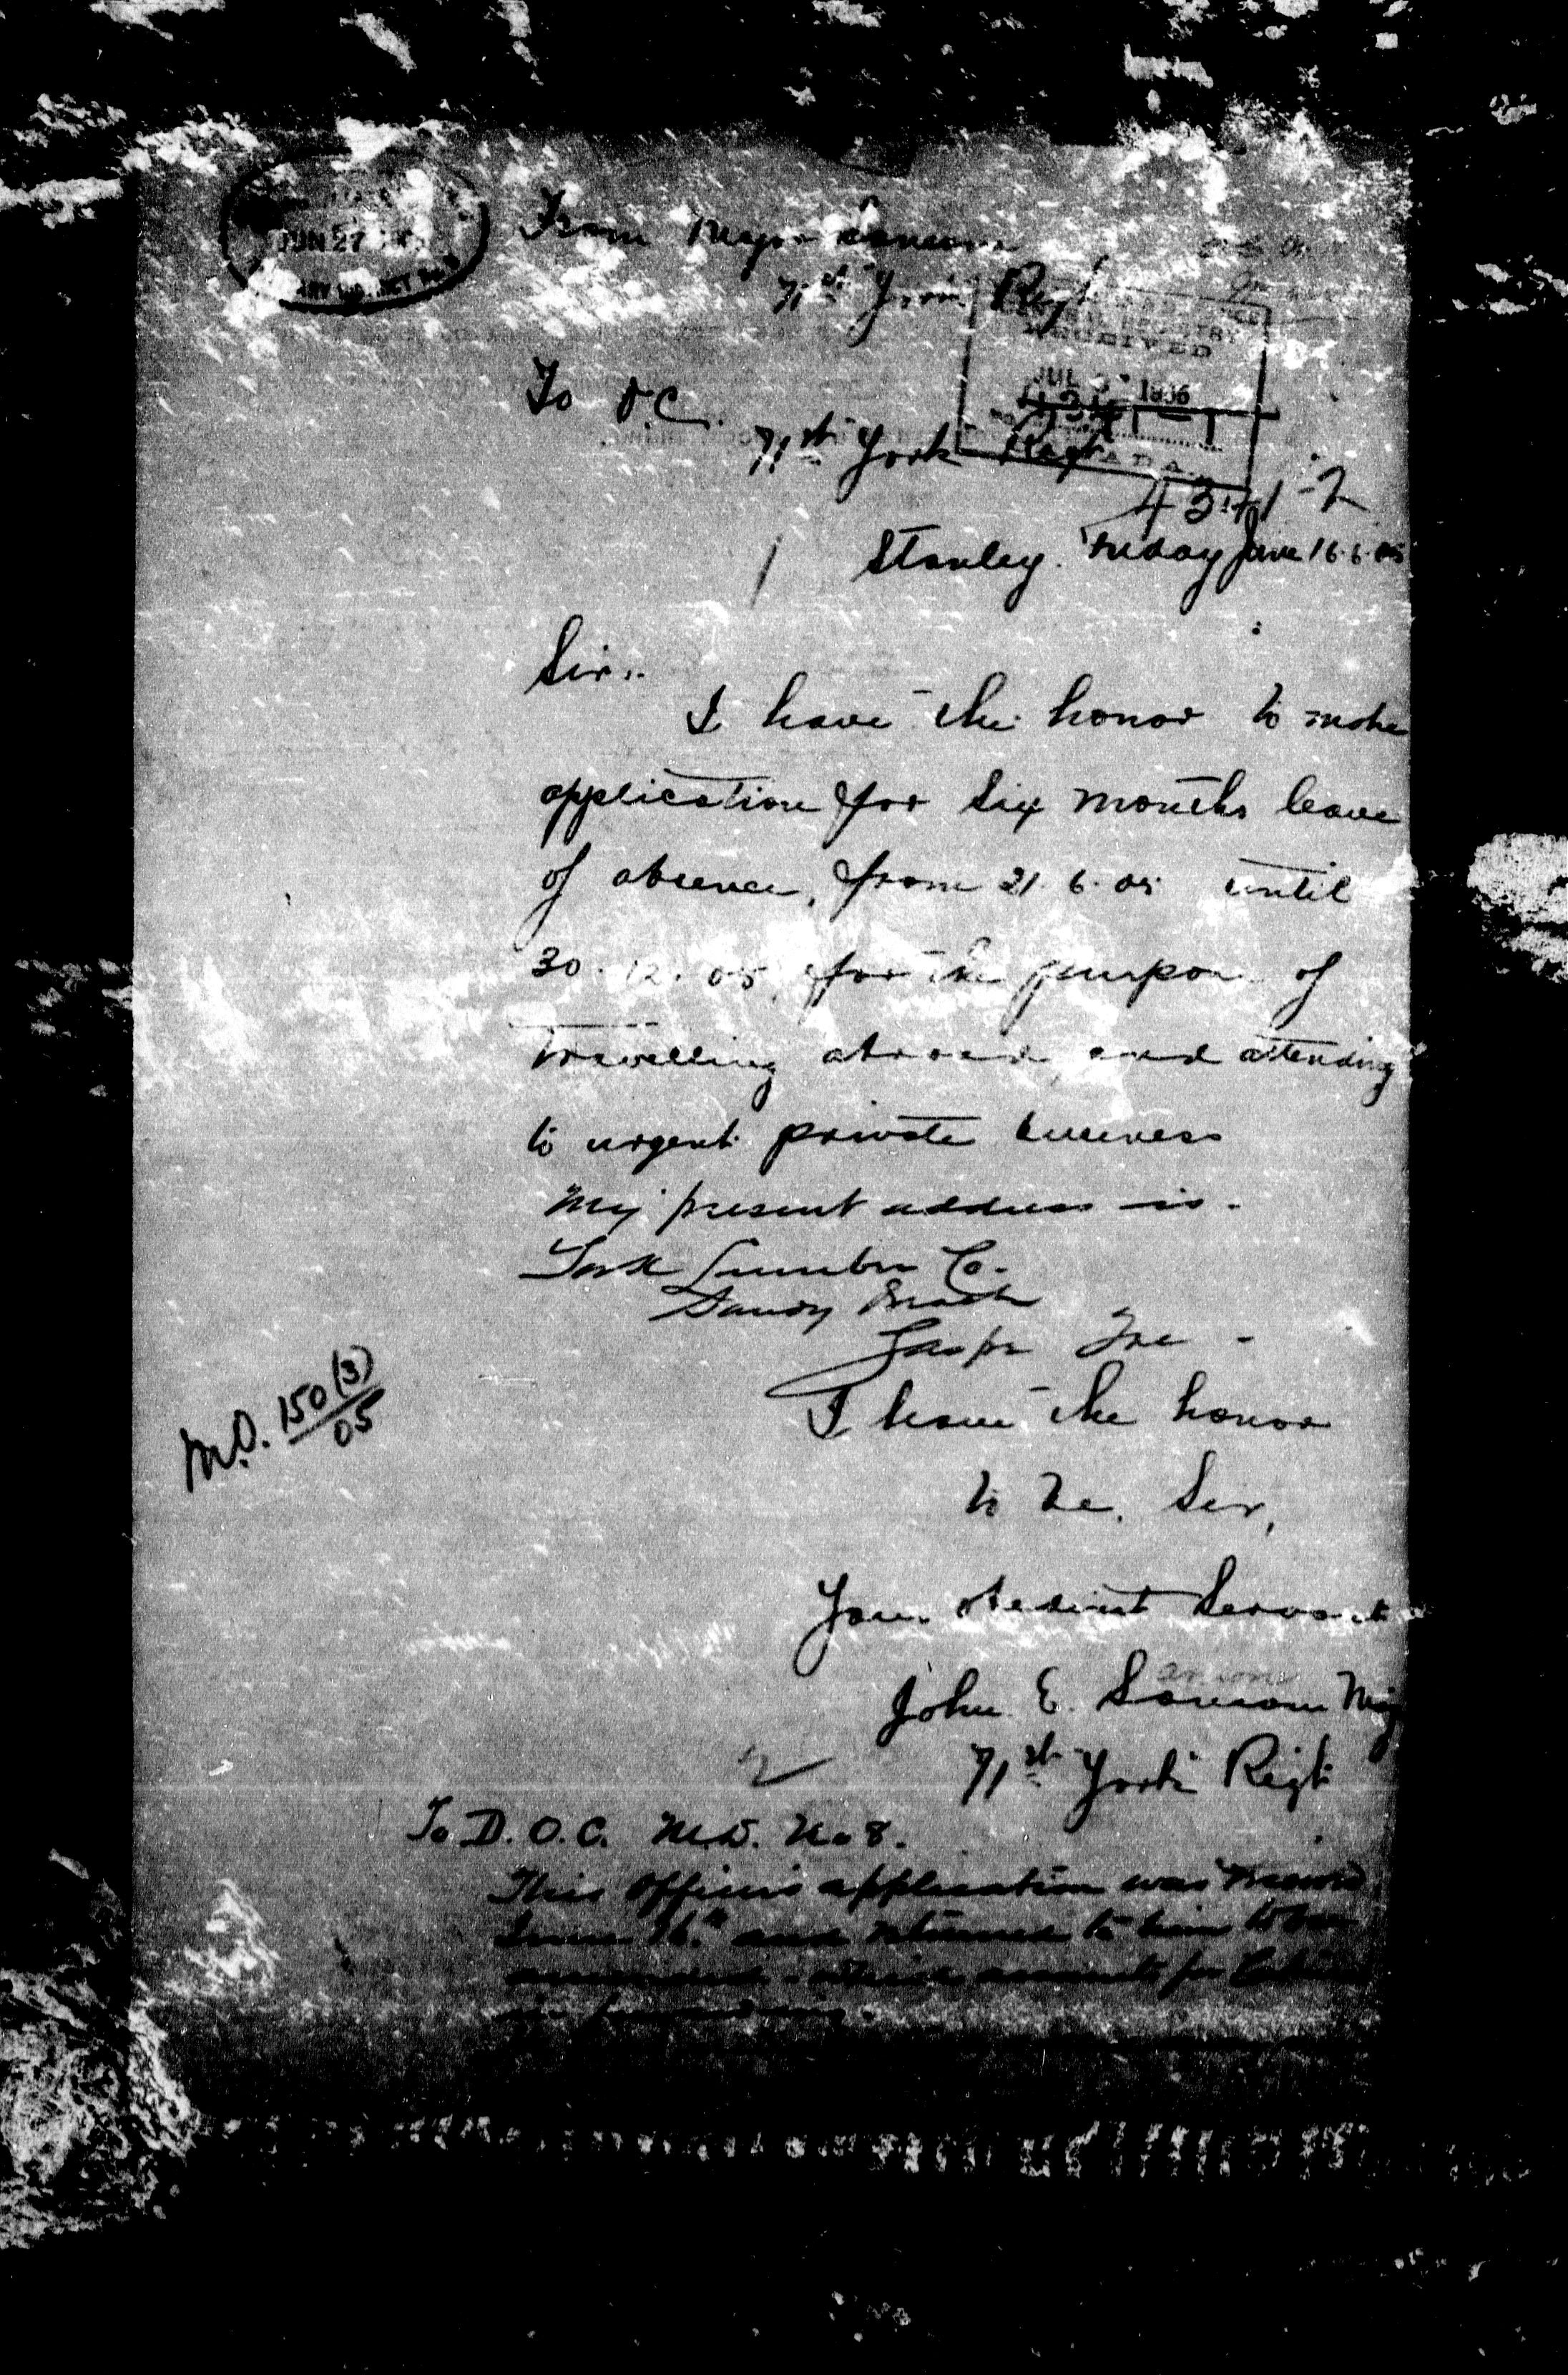 JUN 27
From Major Sansom
71st York Regt
RECEIVED
JUL 3 1936
To O.C.
71st York Regt
4341-2
Stanley. Friday June 16.6.05
Sir:-
I have the honor to make
application for Six months leave
of absence, from 21.6.05 until
30.12.05, for the purpose of
travelling abroad and attending
to urgent private business
My present address is-
York Lumber Co.
Sandy Beach
Gaspe Que -
M.O. 150(3)/05
I have the honor
to be, Sir,
Your obedient Servant
John E. Sansom Maj
71st York Regt
2
To D.O.C. M.D. No 8.
This Officers application was
June 16th and returned to him to be
amended - which accounts for
in forwarding.